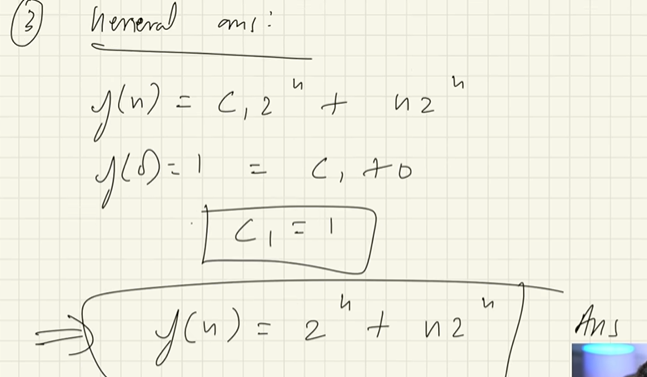 ③ General ans:
y(n) = C₁2ⁿ + n2ⁿ
y(0) = 1 = C₁ + 0
C₁ = 1
⇒ y(n) = 2ⁿ + n2ⁿ Ans